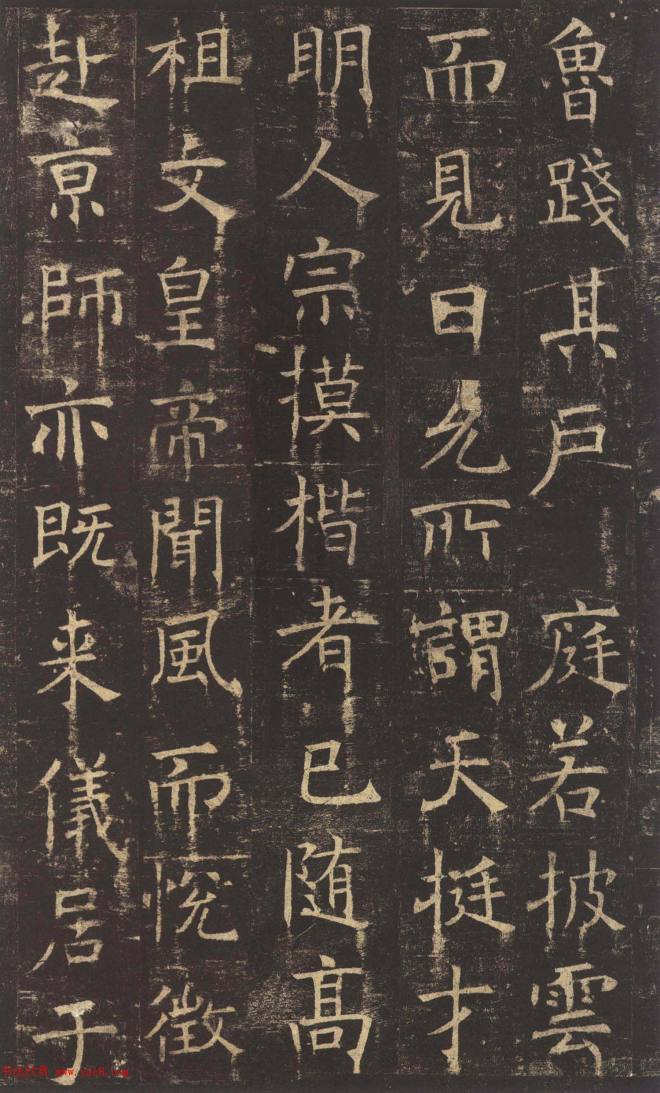 魯踐其户庭若披雲
而見日允所謂天挺才
明人宗摸楷者已随髙
祖文皇帝聞風而悅徵
赴亰師亦既来儀居于